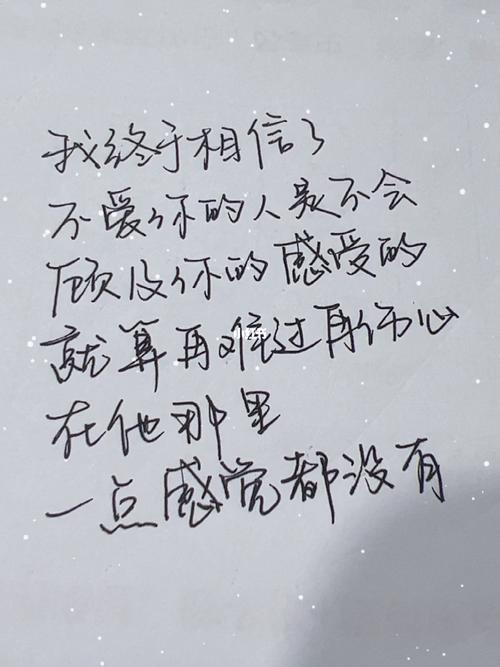 我终于相信了
不爱你的人是不会
顾及你的感受的
就算再难过再伤心
在他那里
一点感觉都没有
小红书